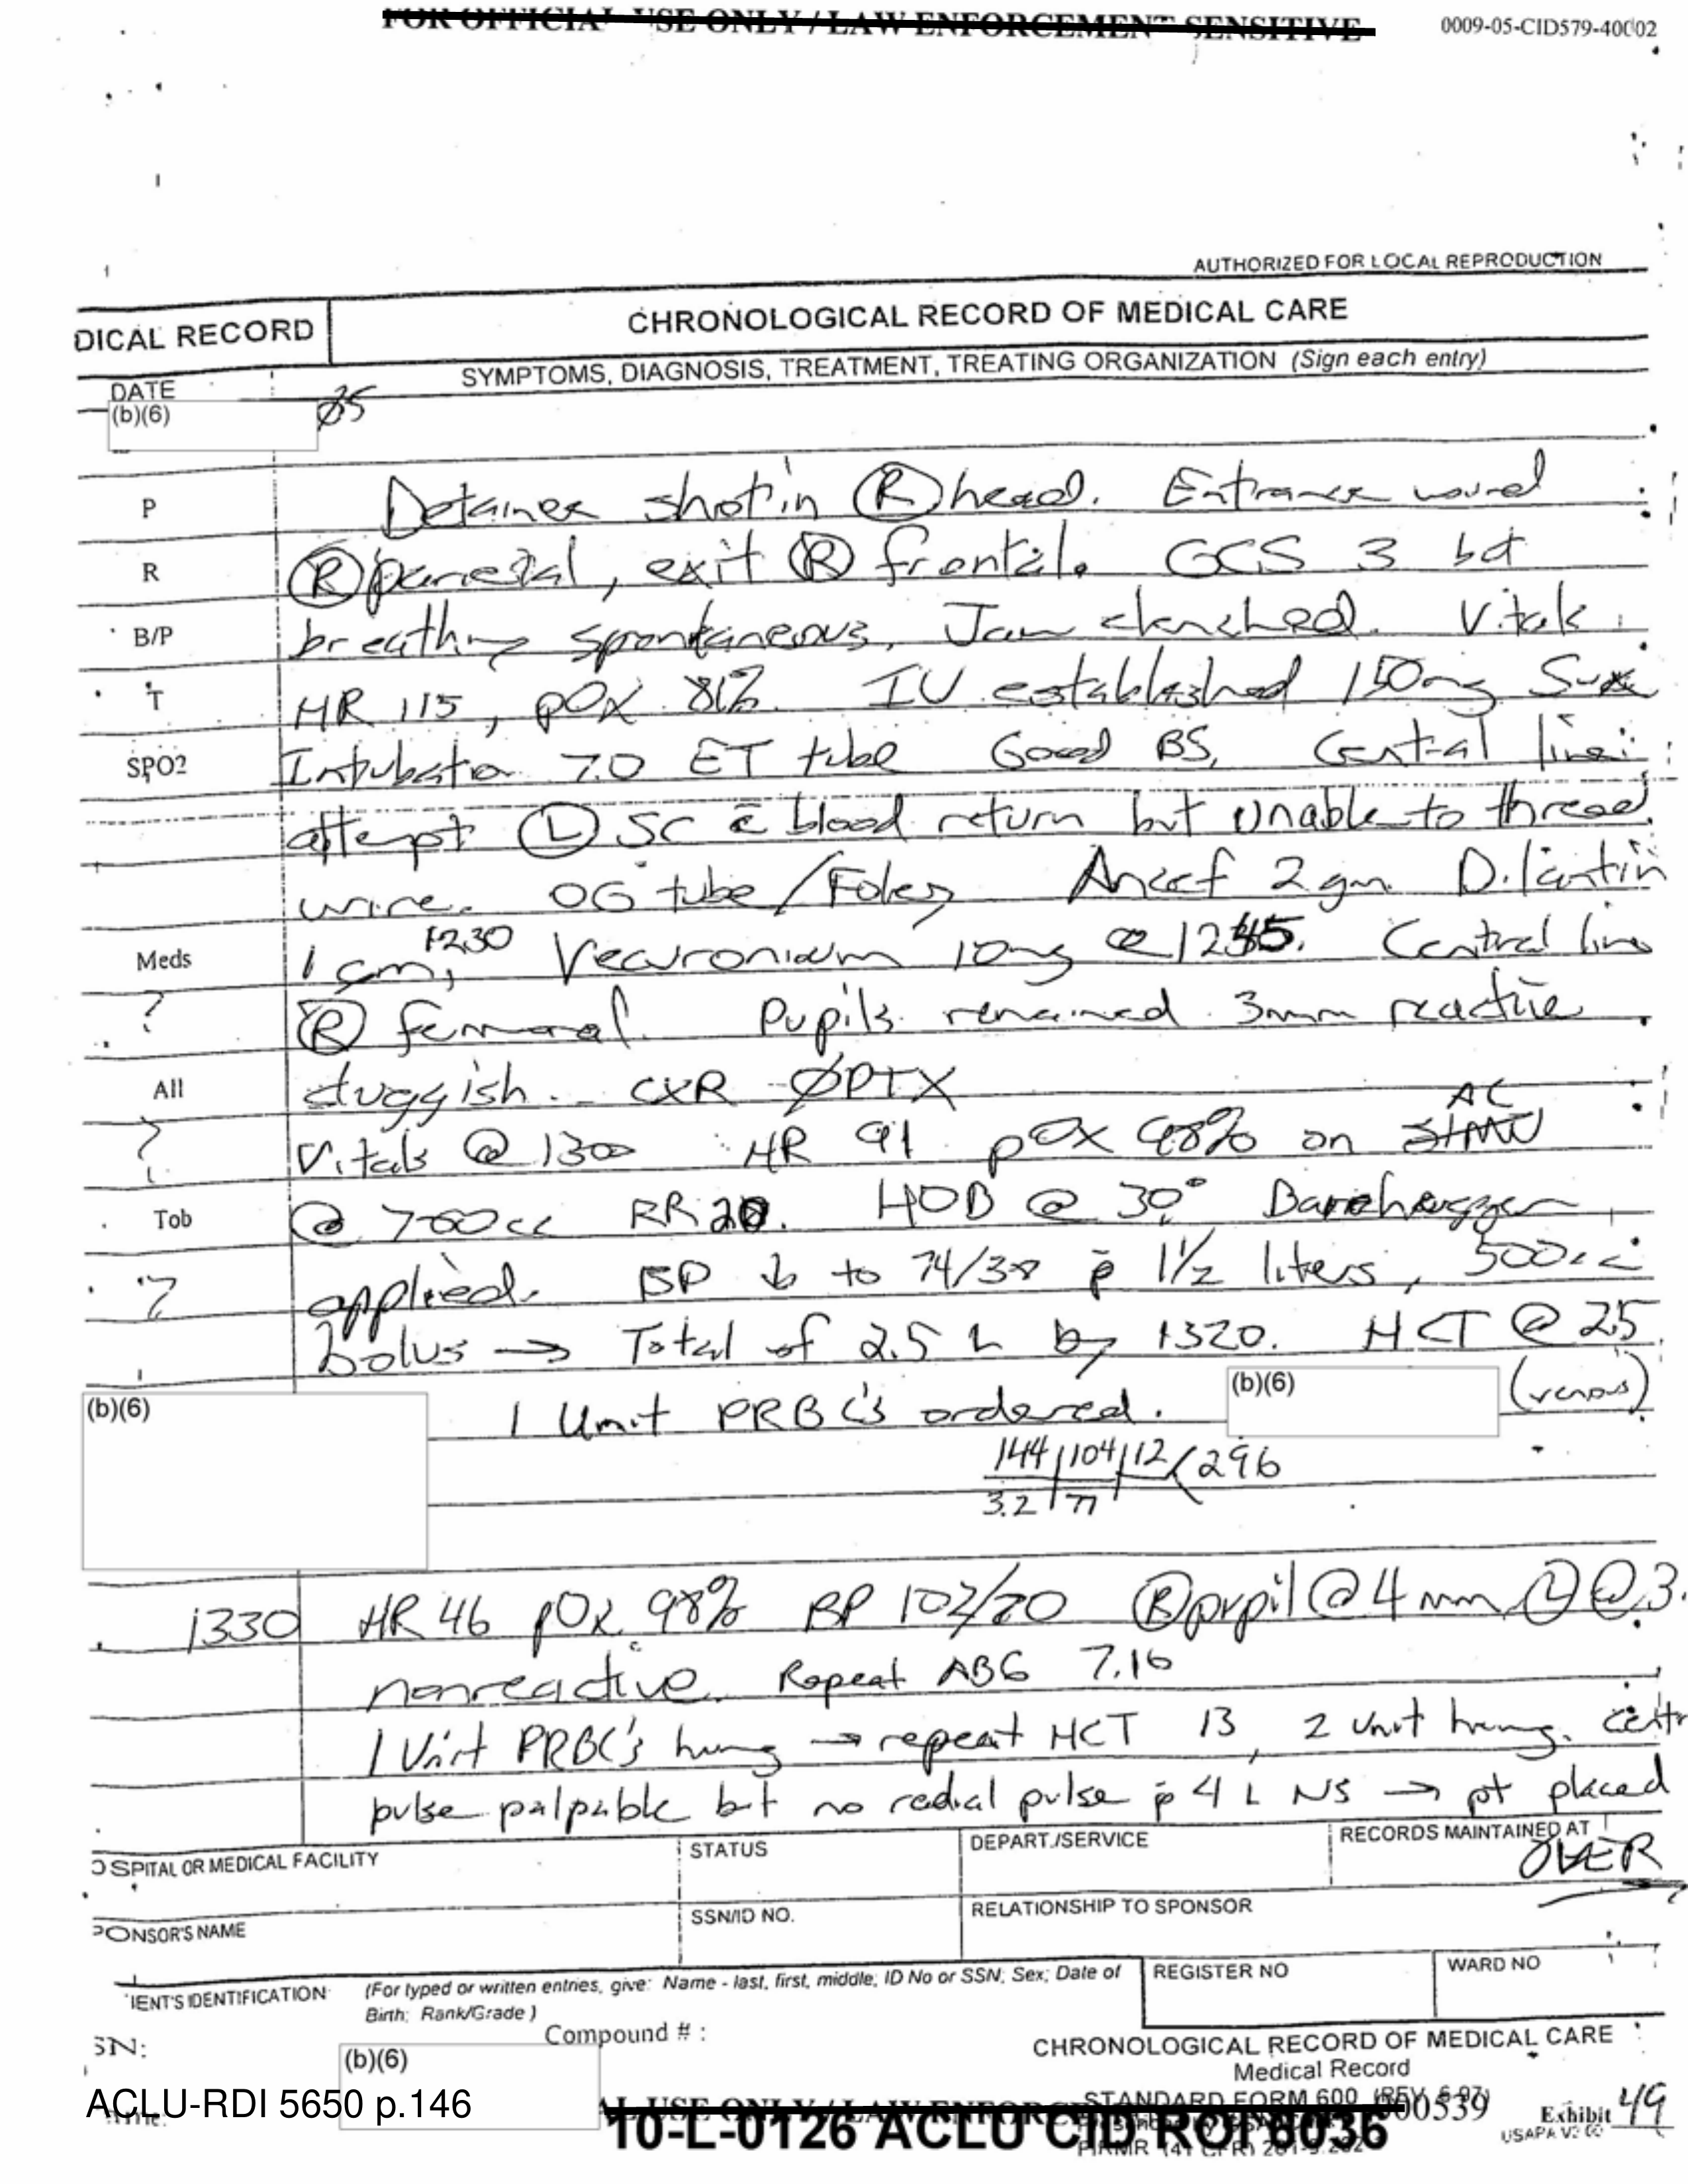 FOR OFFICIAL USE ONLY / LAW ENFORCEMENT SENSITIVE
0009-05-CID579-40002
AUTHORIZED FOR LOCAL REPRODUCTION
DICAL RECORD
CHRONOLOGICAL RECORD OF MEDICAL CARE
DATE
SYMPTOMS, DIAGNOSIS, TREATMENT, TREATING ORGANIZATION (Sign each entry)
(b)(6) Ø5
P Detainee shot in Ⓡ head. Entrance wound
R Ⓡ parietal, exit Ⓡ frontal. GCS 3 but
B/P breathing spontaneous, Jaw clenched. Vitals
T HR 115, pOx 81%. IV established 150mg Sux
SPO2 Intubation 7.0 ET tube Good BS, Central line
attempt Ⓛ SC c̄ blood return but unable to thread
wire. OG tube/Foley Ancef 2 gm Dilantin
Meds 1 gm, 1230 Vecuronium 10mg @ 1245. Central line
? Ⓡ femoral. Pupils remained 3mm reactive
All sluggish. CXR ØPTX
? Vitals @ 1300 HR 91 pOx 98% on SIMV AC
Tob @ 700cc RR 20. HOB @ 30° Barehugger
? applied. BP ↓ to 74/38 p̄ 1 1/2 liters, 500cc
bolus → Total of 2.5 L by 1320. HCT @ 25
(b)(6) 1 Unit PRBC's ordered. (b)(6) (venous)
144 / 104 / 12 < 296
3.2 / 77
1330 HR 46 pOx 98% BP 102/70 Ⓡ pupil @ 4 mm Ⓛ @ 3.
nonreactive. Repeat ABG 7.16
1 Unit PRBC's hung → repeat HCT 13, 2 unit hung. centr
pulse palpable but no radial pulse p̄ 4 L NS → pt placed
OSPITAL OR MEDICAL FACILITY
STATUS
DEPART./SERVICE
RECORDS MAINTAINED AT
OVER
PONSOR'S NAME
SSN/ID NO.
RELATIONSHIP TO SPONSOR
IENT'S IDENTIFICATION: (For typed or written entries, give: Name - last, first, middle; ID No or SSN; Sex; Date of
Birth; Rank/Grade)
REGISTER NO
WARD NO
SN:
Compound # :
(b)(6)
CHRONOLOGICAL RECORD OF MEDICAL CARE
Medical Record
STANDARD FORM 600 (REV. 6-97)
ACLU-RDI 5650 p.146
10-L-0126 ACLU CID ROI 8036
000539
Exhibit 49